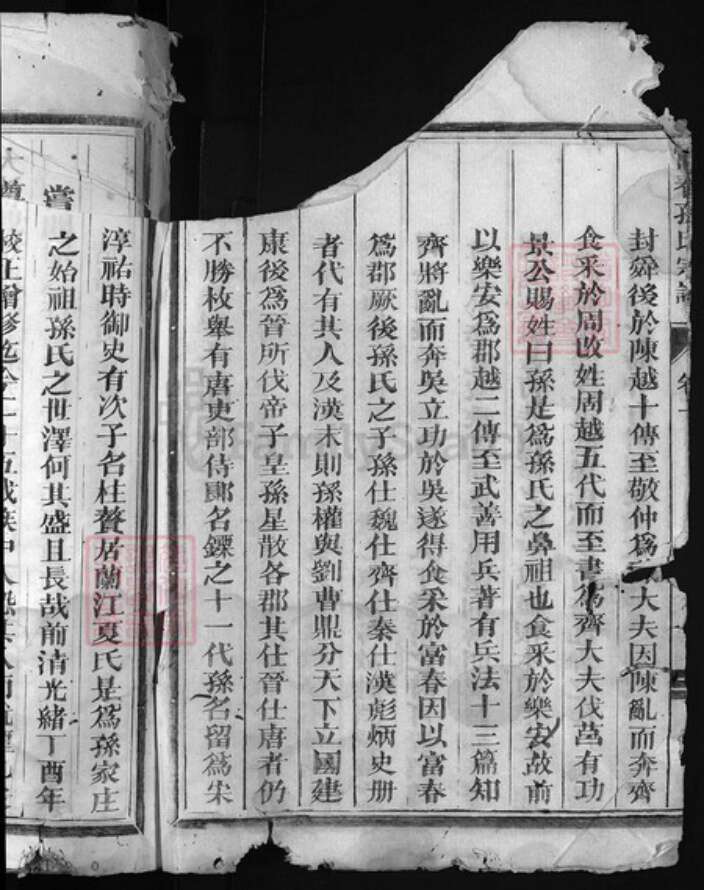 春孫氏宗譜 卷一
封舜後於陳越十傳至敬仲為 大夫因陳亂而奔齊
食采於周改姓周越五代而至書為齊大夫伐莒有功
景公賜姓曰孫是為孫氏之鼻祖也食采於樂安故前
以樂安爲郡越二傳至武善用兵著有兵法十三篇知
齊將亂而奔吳立功於吳遂得食采於富春因以富春
爲郡厥後孫氏之子孫仕魏仕齊仕秦仕漢彪炳史册
者代有其人及漢末則孫權與劉曹鼎分天下立國建
康後爲晉所伐帝子皇孫星散各郡其仕晉仕唐者仍
不勝枚舉有唐吏部侍郞名鏢之十一代孫名留爲宋
淳祐時御史有次子名桂贅居蘭江夏氏是爲孫家庄
之始祖孫氏之世澤何其盛且長哉前清光緒丁酉年
嘗
校正增修迄今二十五載族中人